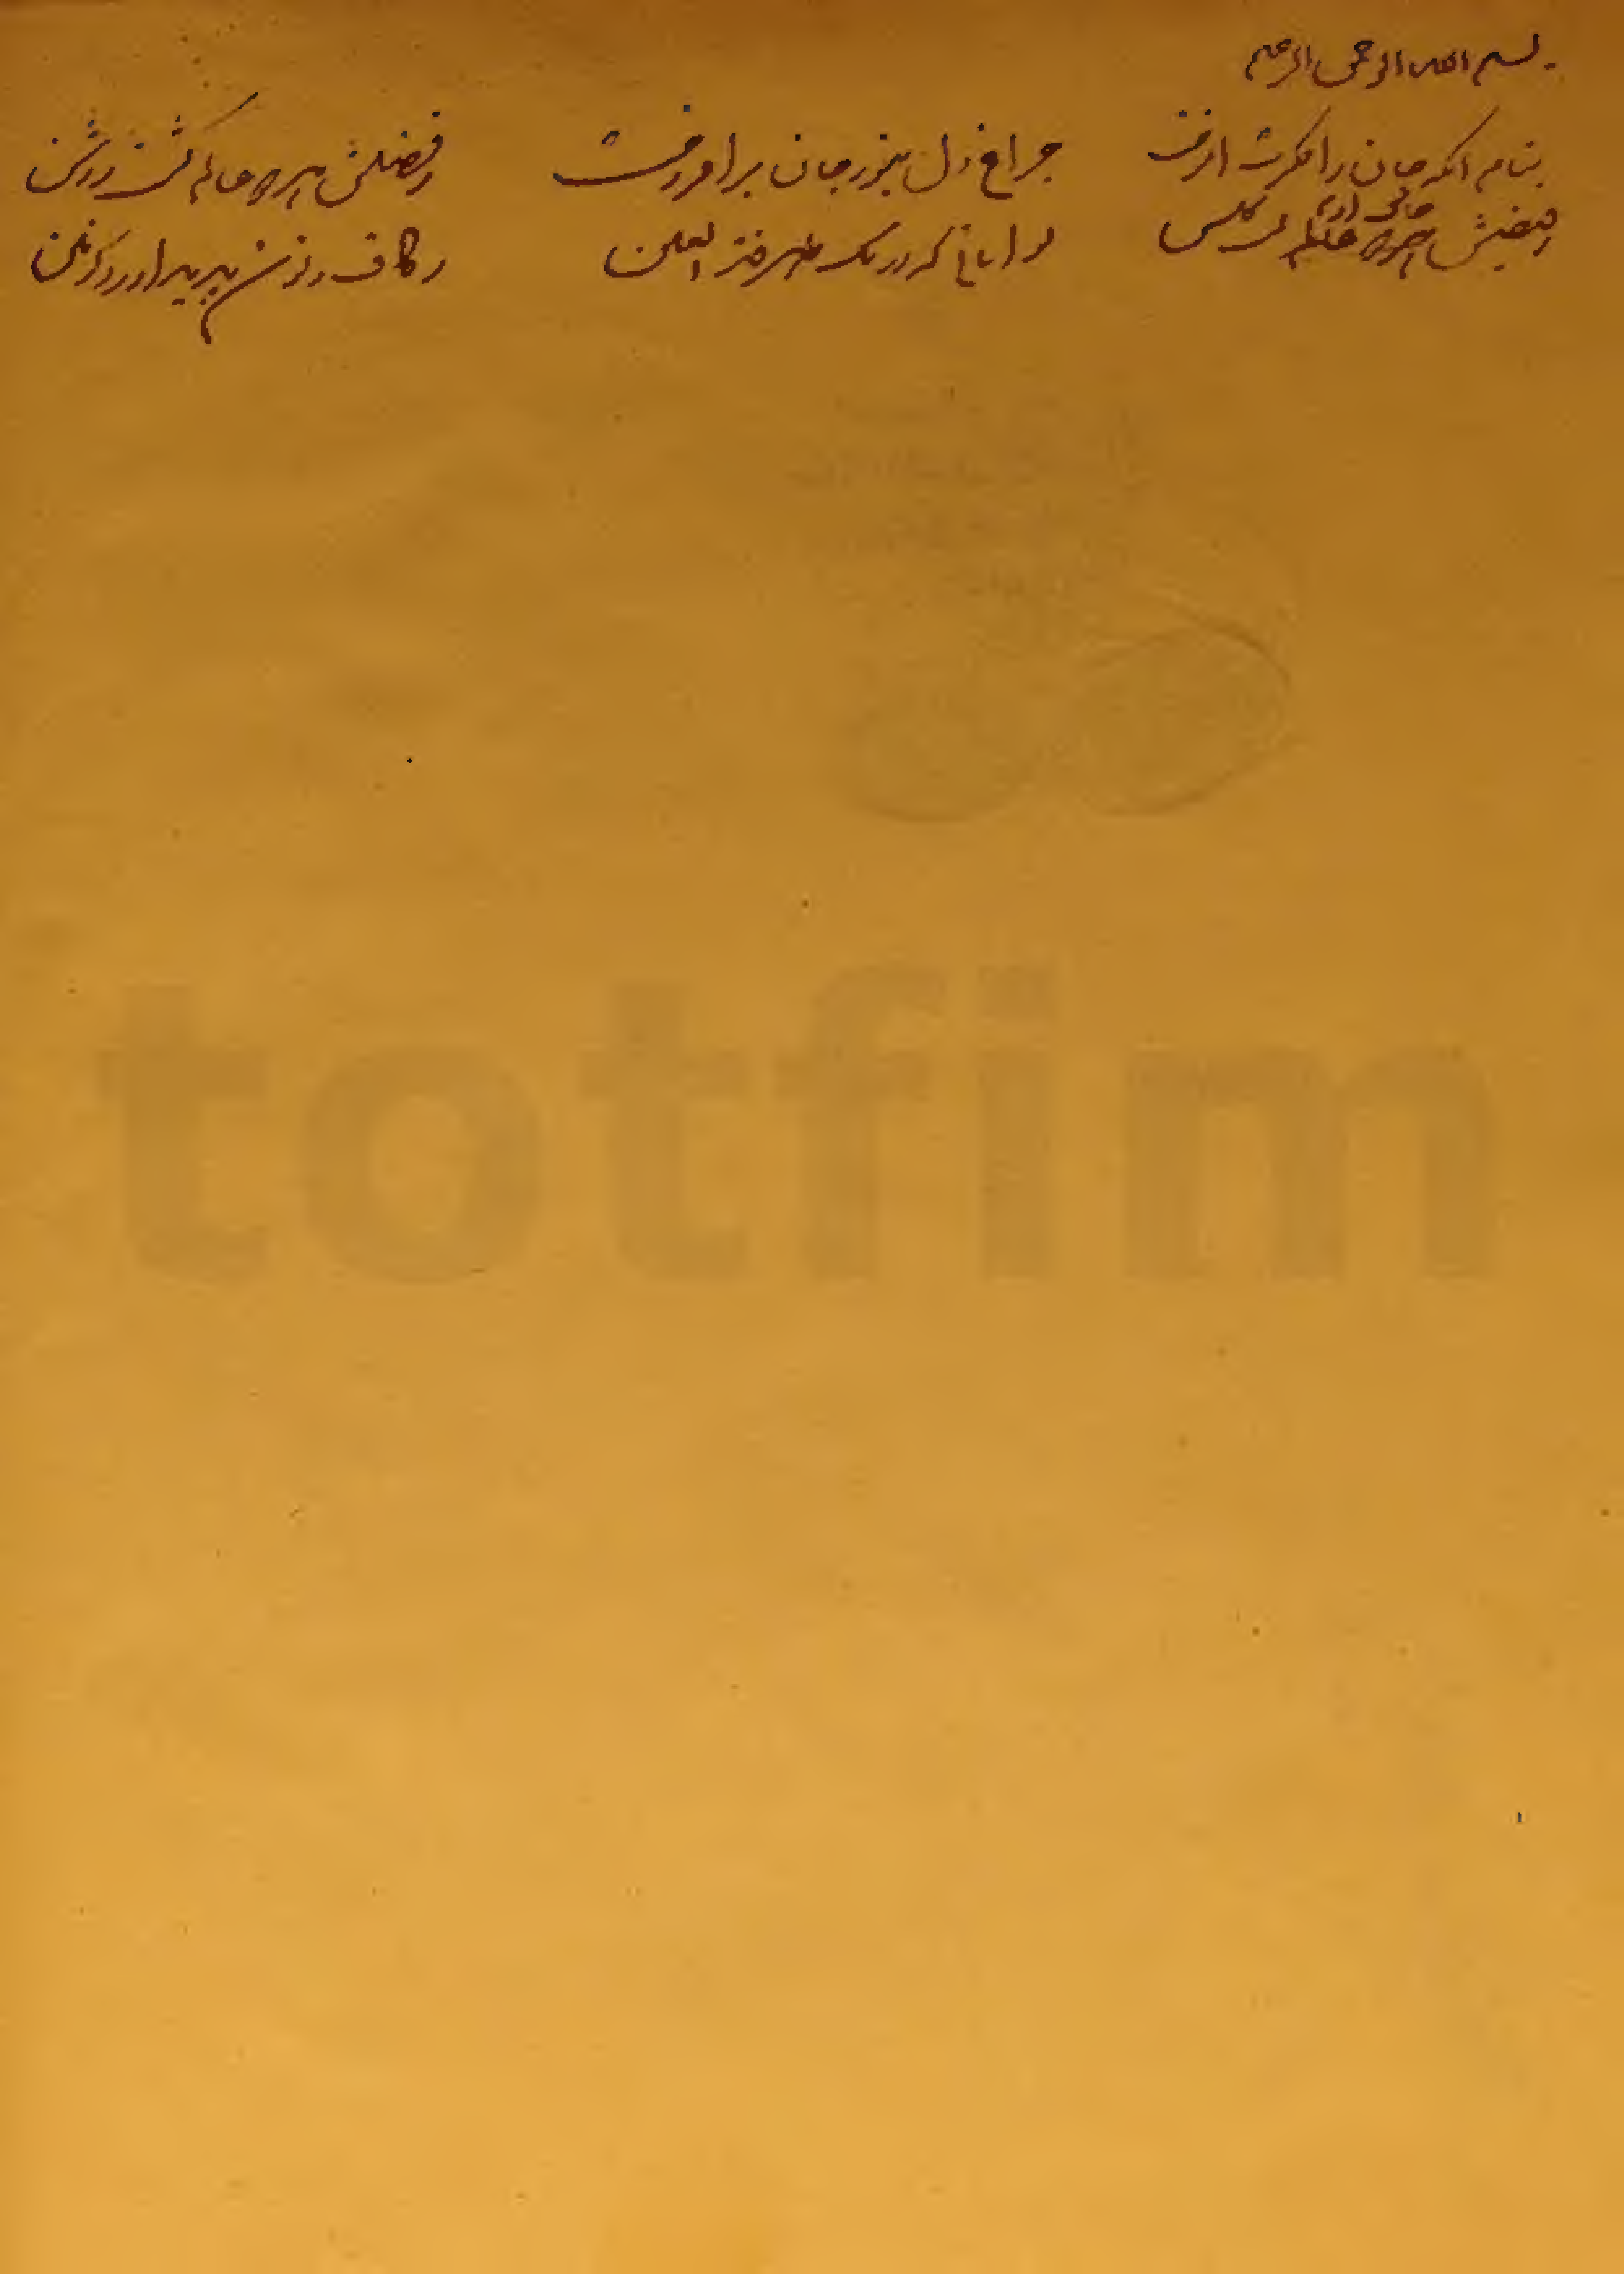 بسم الله الرحمن الرحیم
بنام انکه جان را فکرت اموخت چراغ دل بنور جان برافروخت ز فضلش هر دو عالم گشت روشن
ز فیضش خاک ادم گشت گلشن توانائی که در یک طرفة العین ز کاف و نون پدید اورد کونین
totfim